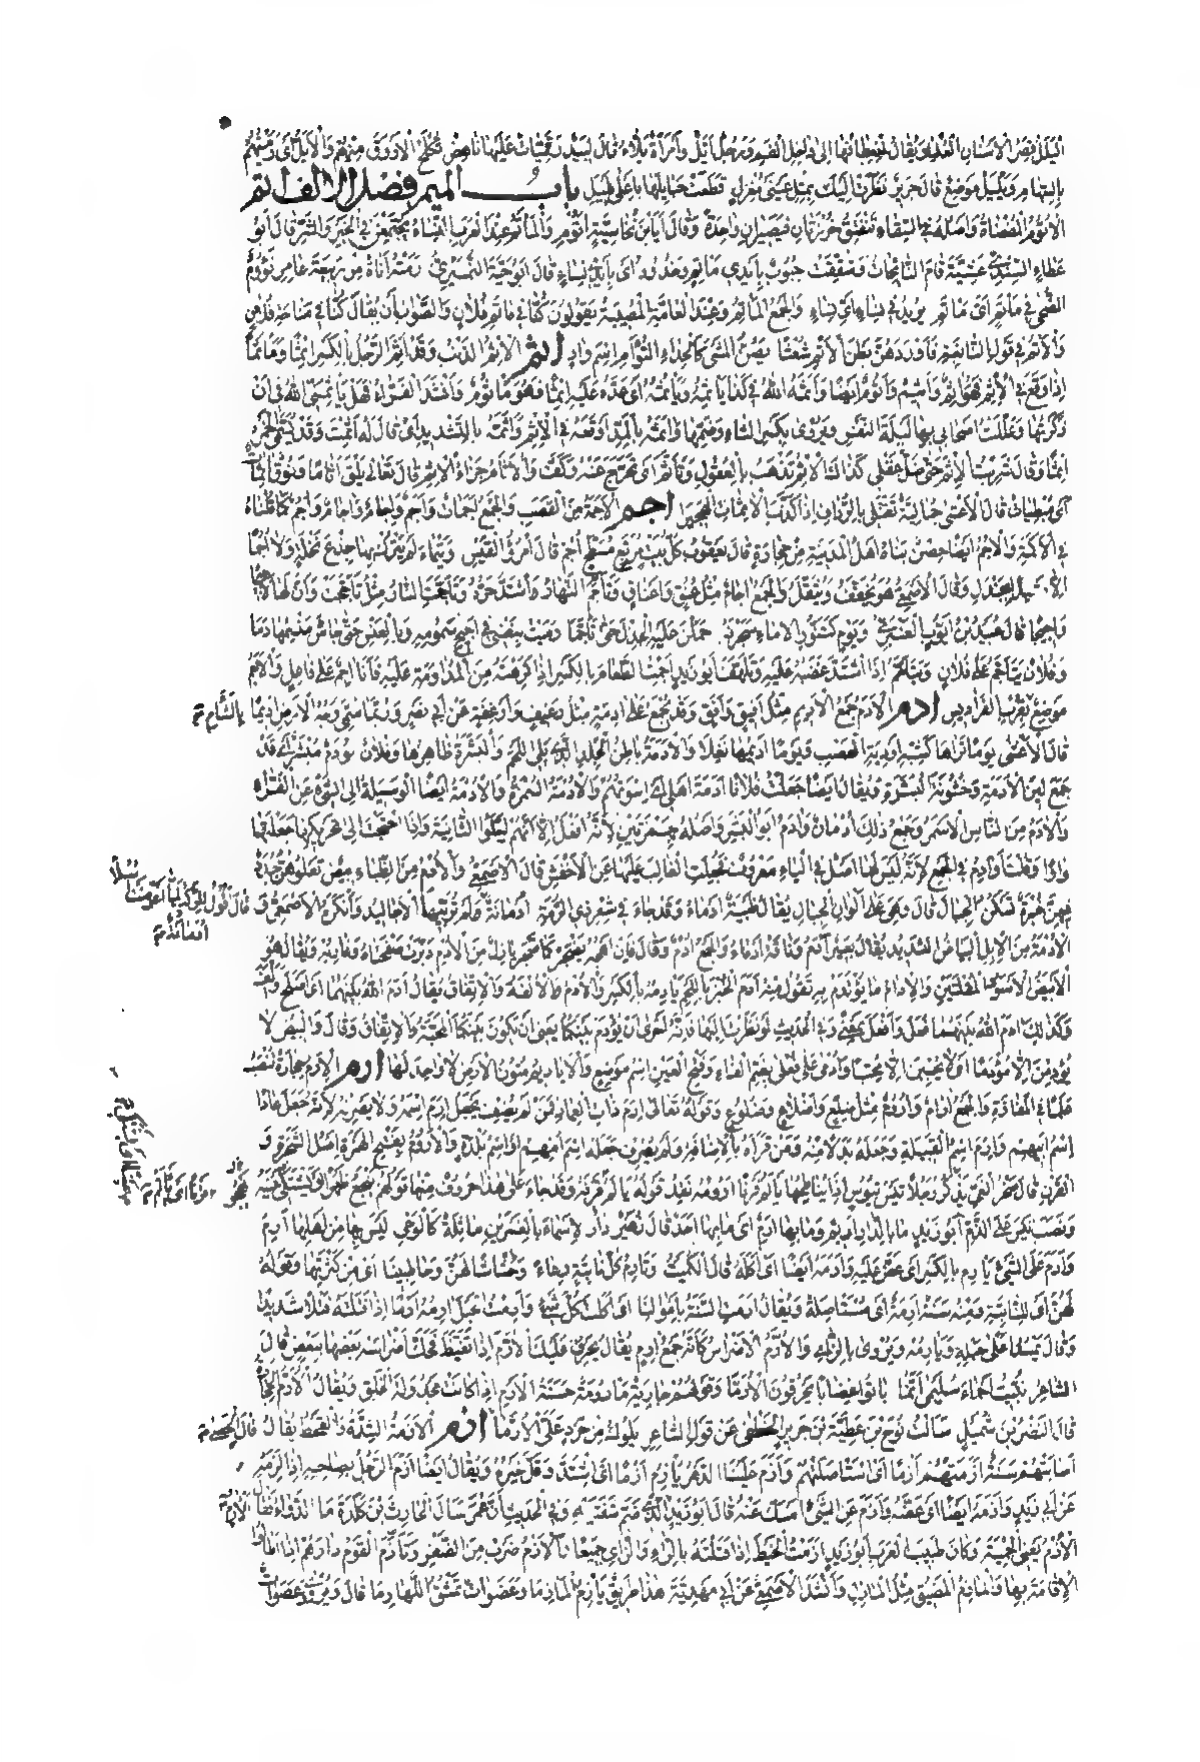 اليلل قصر الأسنان العليا ويقال انعطافها إلى داخل الفم ورجل أيل وامرأة يلاء قال لبيد رقميات عليها ناهض تكلح الأروق منهم والأيل أي رميتهم
بالسهام ويليل موضع قال جرير نظرت إليك بمثل عيني مغزل قطعت حبائلها بأعلى يليل باب الميم فصل الألف أتم
الأتوم المفضاة وأصله في السقاء تنفتق خرزتان فتصيران واحدة وقال أيا ابن نخاسية أتوم والمأتم عند العرب النساء يجتمعن في الخير والشر قال أبو
عطاء السندي عشية قام النائحات وشققت جيوب بأيدي مأتم وخدود أي بأيدي نساء قال أبو حية النميري رمته أناة من ربيعة عامر نؤوم
الضحى في مأتم أي مأتم يريد في نساء أي نساء والجمع المآتم وعند العامة المصيبة يقولون كنا في مأتم فلان والصواب أن يقال كنا في مناحة فلان
والأتم في قول النابغة فأوردهن بطن الأتم شعثا يصن المشي كالحدإ التؤام اسم واد أثم الإثم الذنب وقد أثم الرجل بالكسر إثما ومأثما
إذا وقع في الإثم فهو آثم وأثيم وأثوم أيضا وأثمه الله في كذا يأثمه ويأثمه أي عده عليه إثما فهو مأثوم وأنشد الفراء فهل يأثمني الله في أن
ذكرتها وعللت أصحابي بها ليلة النفر ويروى بكسر الثاء وضمها وآثمه بالمد أوقعه في الإثم وأثمه بالتشديد أي قال له أثمت وقد تسمى الخمر
إثما وقال شربت الإثم حتى ضل عقلي كذاك الإثم تذهب بالعقول وتأثم أي تحرج عنه وكف والأثام جزاء الإثم قال تعالى يلق أثاما ونوق آثمات
أي مبطئات قال الأعشى جمالية تغتلي بالرداف إذا كذب الآثمات الهجيرا أجم الأجمة من القصب والجمع أجمات وأجم وإجام وآجام وأجم كما قلناه
في الأكمة والأجم أيضا حصن بناه أهل المدينة من حجارة قال يعقوب كل بيت مربع مسطح أجم قال امرؤ القيس وتيماء لم يترك بها جذع نخلة ولا أجما
إلا مشيدا بجندل وقال الأصمعي هو يخفف ويثقل والجمع آجام مثل عنق وأعناق وتأجم النهار أي اشتد حره وتأجمت النار مثل تأججت وإن لها لأجيما
وأجيجا قال عبيد بن أيوب العنبري ويوم كتنور الإماء سجرنه حملن عليه الجذل حتى تأجما رميت بنفسي في أجيج سمومه وبالعنس حتى جاش منسمها دما
وفلان يتأجم على فلان وتأجم إذا اشتد غضبه عليه وتلهف أبو زيد أجمت الطعام بالكسر إذا كرهته من المداومة عليه فأنا آجم على فاعل والأجم
موضع بقرب الفراديس أدم الأدم جمع الأديم مثل أفيق وأفق وقد يجمع على آدمة مثل رغيف وأرغفة عن أبي نصر وربما سمي وجه الأرض أديما
بالشام
قال الأعشى يوما تراها كشبه أردية العصب ويوما أديمها نغلا والأدمة باطن الجلد الذي يلي اللحم والبشرة ظاهرها وفلان مؤدم مبشر أي قد
جمع لين الأدمة وخشونة البشرة ويقال أيضا جعلت فلانا أدمة أهلي أي أسوتهم والأدمة السمرة والأدمة أيضا الوسيلة إلى الشيء عن الفراء
والآدم من الناس الأسمر وجمع ذلك أدمان وآدم أبو البشر وأصله بهمزتين لأنه أفعل إلا أنهم لينوا الثانية وإذا احتجت إلى تحريكها جعلتها
واوا وقلت أوادم في الجمع لأنه ليس لها أصل في الياء معروف فجعلت الغالب عليها عن الأخفش قال الأصمعي والأدم من الظباء بيض تعلوهن جدد
فيهن غبرة تسكن الجبال قال وهي على ألوان الجبال يقال ظبية أدماء وقد جاء في شعر ذي الرمة أدمانة
الأدمة من الإبل البياض الشديد يقال بعير آدم وناقة أدماء والجمع أدم وقال فإن أهجه يضجر كما ضجر بازل من الأدم دبرت صفحتاه وغاربه ويقال هو
الأبيض الأسود المقلتين والإدام ما يؤتدم به تقول منه أدم الخبز باللحم يأدمه بالكسر والأدم الألفة والاتفاق يقال أدم الله بينهما أي أصلح وألف
وكذلك آدم الله بينهما فعل وأفعل بمعنى وفي الحديث لو نظرت إليها فإنه أحرى أن يؤدم بينكما يعني أن تكون بينكما المحبة والاتفاق وقال والبيض لا
يؤدمن إلا مؤدما أي لا يحببن إلا محببا وأدمى على فعلى بضم الفاء وفتح العين اسم موضع والأياديم متون الأرض لا واحد لها أرم الإرم حجارة تنصب
علما في المفازة والجمع آرام وأروم مثل ضلع وأضلاع وضلوع وقوله تعالى إرم ذات العماد فمن لم يضف جعل إرم اسمه ولا يصرفه لأنه جعل عادا
اسم أبيهم وإرم اسم القبيلة وجعله بدلا منه ومن قرأه بالإضافة ولم يصرف جعله اسم أمهم أو اسم بلدة والأروم بفتح الهمزة أصل الشجرة و
القرن قال صخر الغي يذكر رجلا تيس تيوس إذا يناطحها يألم قرنا أرومه نقد قوله يألم قرنه وقد جاء على هذا حروف منها قولهم يجع ظهرا ويشتكي عينه
ونصب تيس على الذم أبو زيد ما بالدار أريم وما بها أرم أي ما بها أحد قال زهير دار لأسماء بالغمرين ماثلة كالوحي ليس بها من أهلها أرم
وأرم على الشيء يأرم بالكسر أي عض عليه وأرمه أيضا أي أكله قال الكميت وتأرم كل نابتة رعاء وحشاشا لهن وحاطبينا أي من كثرتها وقوله
لهن أي للنابتة ومنه سنة آرمة أي مستأصلة ويقال أرمت السنة بأموالنا أي أكلت كل شيء وأرمت الحبل أرمه أرما إذا فتلته فتلا شديدا
الشاعر نبئت أحماء سليمى أنما باتوا غضابا يحرقون الأرما وقولهم جارية مأرومة حسنة الأرم إذا كانت مجدولة الخلق
قال النضر بن شميل سألت نوح بن جرير بن الخطفى عن قول الشاعر يلوك من حرد علي الأرما أزم الأزمة الشدة والقحط يقال
أصابتهم سنة أزمتهم أزما أي استأصلتهم وأزم علينا الدهر يأزم أزما أي اشتد وقل خيره ويقال أيضا أزم الرجل بصاحبه إذا لزمه
عن أبي زيد وأزمه أيضا أي عضه وأزم عن الشيء أمسك عنه قال أبو زيد الذي ضم شفتيه وفي الحديث أن عمر سأل الحارث بن كلدة ما الدواء فقال
الأزم يعني الحمية وكان طبيب العرب أبو زيد أزمت الخيط إذا فتلته بالراء والزاي جميعا والأزم ضرب من الضفر وتأزم القوم دارهم إذا أطالوا
الإقامة بها والمأزم المضيق مثل المأزل وأنشد الأصمعي عن أبي مهدية هذا طريق يأزم المآزما وعضوات تمشق اللهازما قال ويروى عصوات